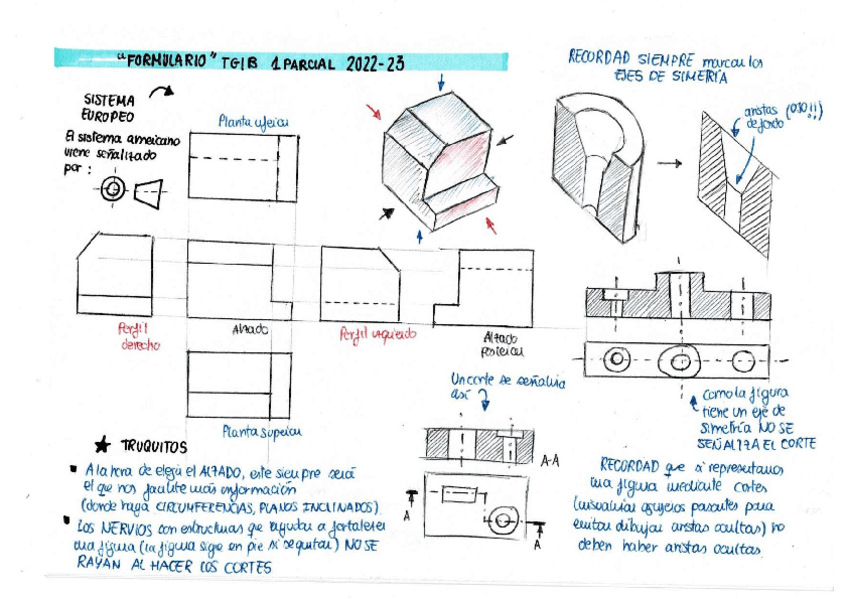 "FORMULARIO" TGIB 1 PARCIAL 2022-23
SISTEMA
EUROPEO
El sistema americano
viene señalizado
por:
Planta inferior
Perfil
derecho
Alzado
Perfil izquierdo
Alzado
posterior
Planta superior
RECORDAD SIEMPRE marcar los
EJES DE SIMETRÍA
aristas (OJO!!)
de fondo
Como la figura
tiene un eje de
simetría NO SE
SEÑALIZA EL CORTE
Un corte se señaliza
así
A-A
A
A
★ TRUQUITOS
▪ A la hora de elegir el ALZADO, este siempre será
el que nos facilite más información
(donde haya CIRCUMFERENCIAS, PLANOS INCLINADOS).
▪ LOS NERVIOS son estructuras que ayudan a fortalecer
una figura (la figura sigue en pie si se quitan) NO SE
RAYAN AL HACER LOS CORTES
RECORDAD que si representamos
una figura mediante cortes
(visualizar agujeros pasantes para
evitar dibujar aristas ocultas) no
deben haber aristas ocultas.